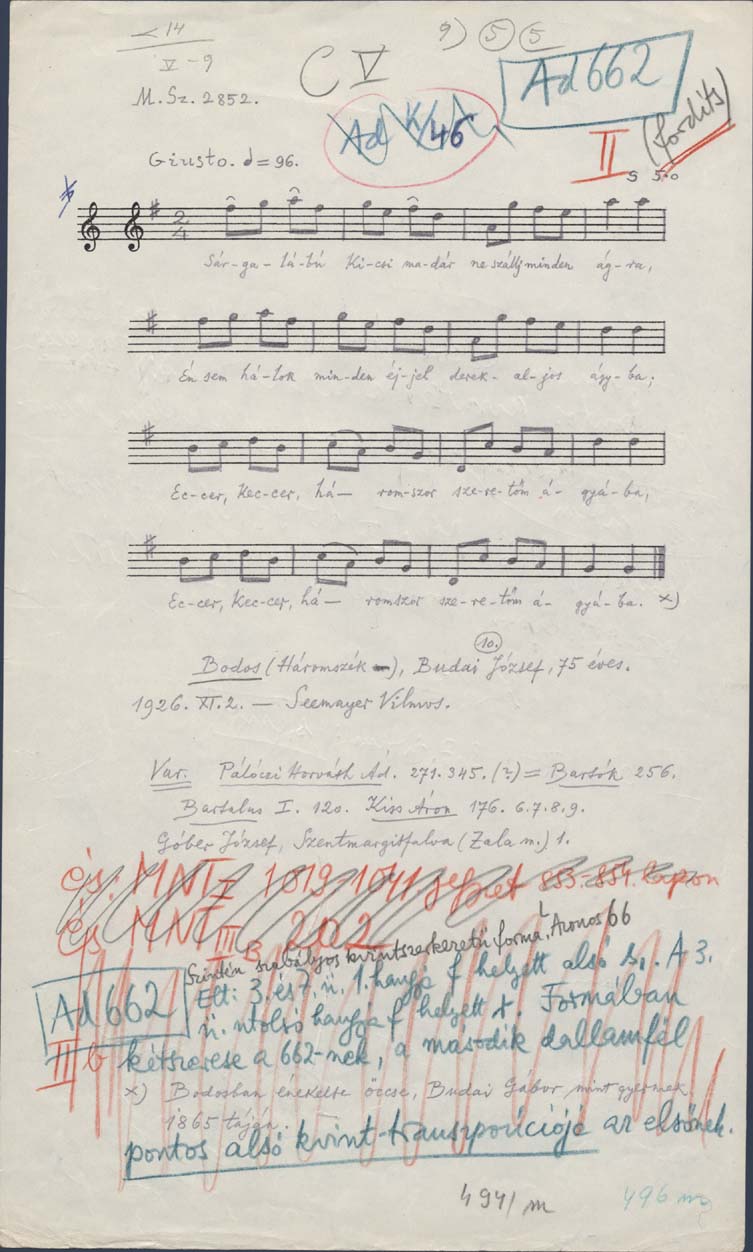 < 14
V - 9
9) 5 5
C V
M. Sz. 2852.
Ad 662
Ad K/A 46
II (fordits)
Giusto. = 96.
s s.o
2
4
Sár-ga-lá-bú Ki-csi ma-dár ne szállj minden ág-ra,
Én sem há-lok min-den éj-jel derek-al-jos ágy-ba;
Ec-cer, Kec-cer, há— rom-szor sze-re-tőm á- gyá-ba,
Ec-cer, Kec-cer, há— romszor sze-re-tőm á- gyá-ba. x)
10.
Bodos (Háromszék), Budai József, 75 éves.
1926. XI. 2. — Seemayer Vilmos.
Var. Pálóczi Horváth Ád. 271. 345. (?) = Bartók 256.
Bartalus I. 120. Kiss Áron 176. 6. 7. 8. 9.
Góber József, Szentmargitfalva (Zala m.) 1.
és: MNT I 1019-1041 853-854. lapon
és MNT III B 202
Szintén szabályos kvintszerkezetű forma, Aronos 66
Ad 662
Elt: 3. és 7. ü. 1. hangja f helyett alsó s,. A 3.
ü. utolsó hangja f helyett r. Formában
III b kétszerese a 662-nek, a második dallamfél
x) Bodosban énekelte öccse, Budai Gábor mint gyermek
1865 táján.
pontos alsó kvint-transzpoziciója az elsőnek.
494/m
496 m